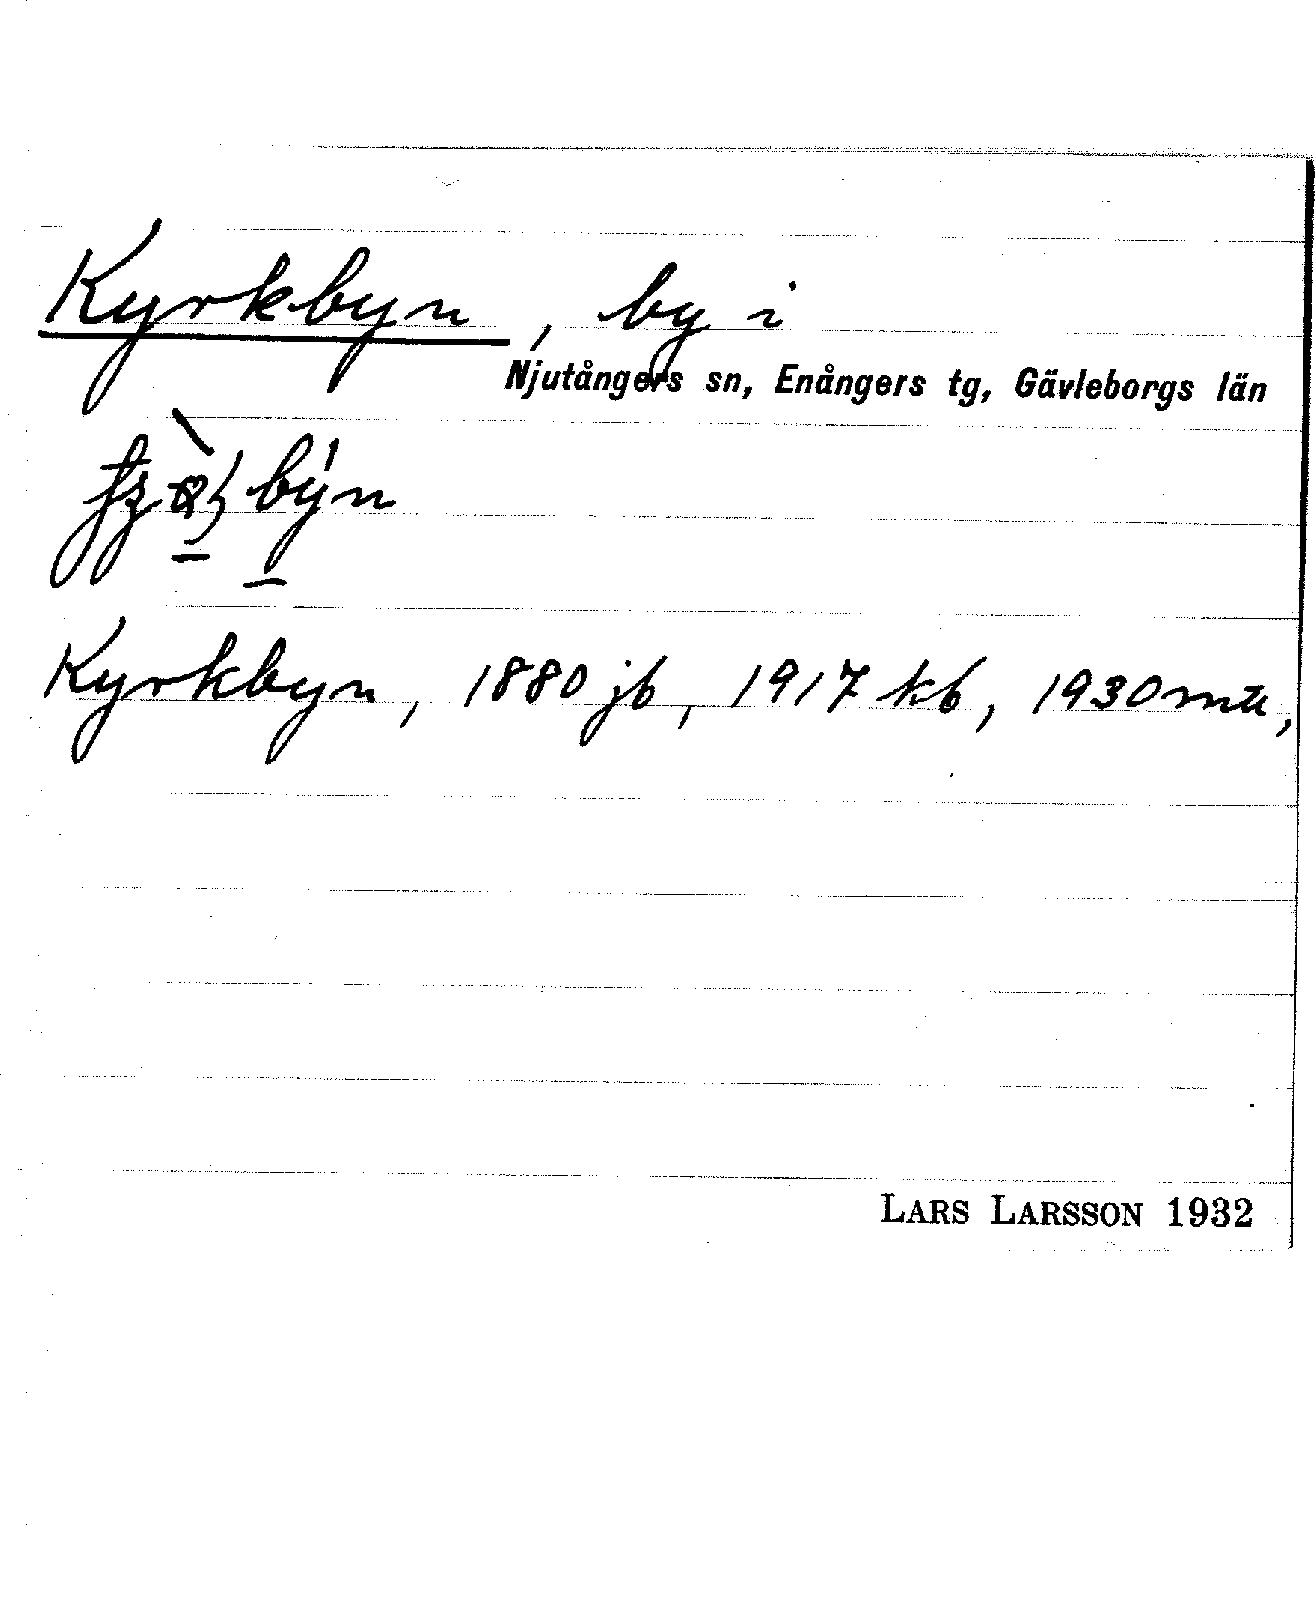 Kyrkbyn, by i
Njutångers sn, Enångers tg, Gävleborgs län
Kyrkbyn, 1880 jb, 1917 kb, 1930 mtl,
LARS LARSSON 1932